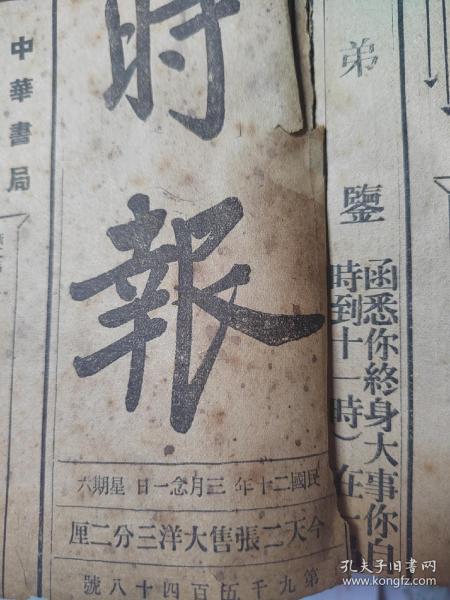 弟鑒
函悉你終身大事你自
時到十一時）在
時報
民國二十年三月念一日 星期六
今天二張售大洋三分二厘
第九千伍百四十八號
中華書局
孔夫子旧书网